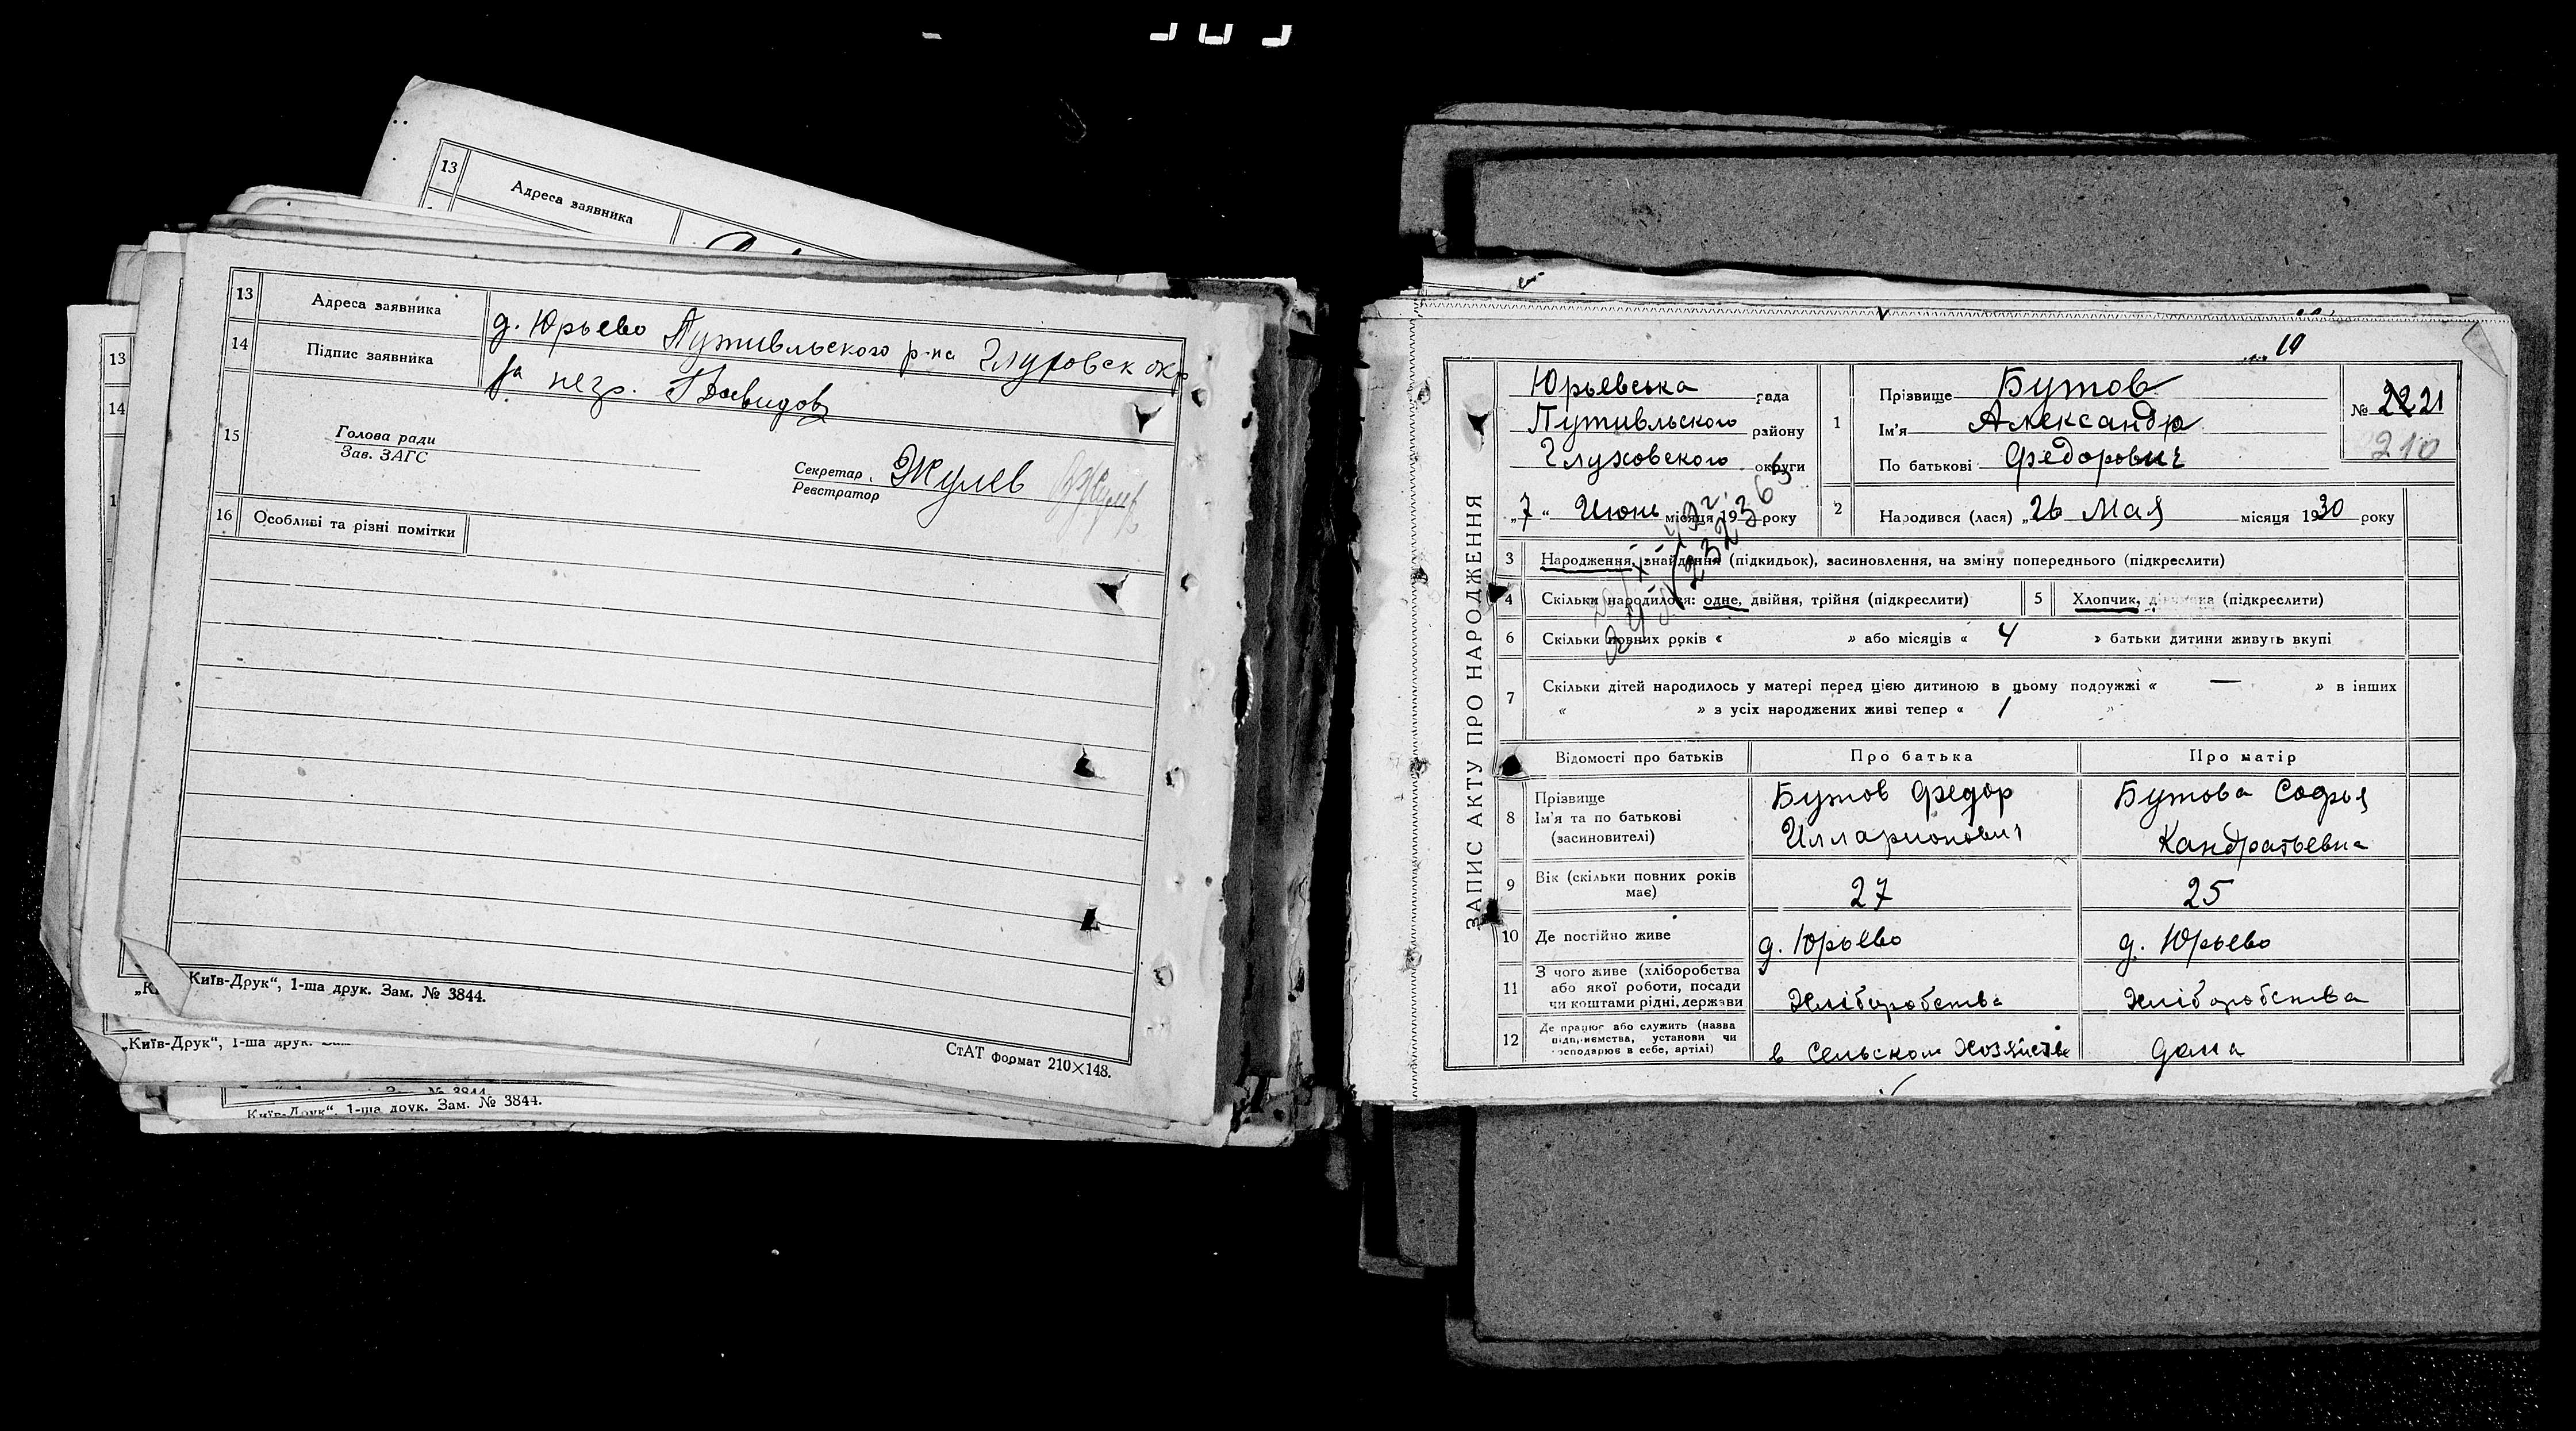 13 Адреса заявника
13 Адреса заявника д. Юрьево Путивльского р-на Глуховск окр
14 Підпис заявника За негр. Давидов
15 Голова ради
Зав. ЗАГС
Секретар Жулев
Реєстратор
16 Особливі та різні помітки
Київ-Друк“, 1-ша друк. Зам. № 3844.
СтАТ формат 210×148.
„Київ-Друк“, 1-ша друк.
Київ-Друк“, 1-ша друк. Зам. № 3844.
13
14
19
ЗАПИС АКТУ ПРО НАРОДЖЕННЯ
Юрьевська рада
Путивльского району
Глуховского округи
„7“ Июнь місяця 1930 року
1 Прізвище Бутов
Ім'я Александр
По батькові Федорович
№ 22 21
210
2 Народився (лася) „26 Мая місяця 1930 року
3 Народження, знайдення (підкидьок), засиновлення, на зміну попереднього (підкреслити)
4 Скільки народилося: одне, двійня, трійня (підкреслити) 5 Хлопчик, дівчинка (підкреслити)
6 Скільки повних років « » або місяців « 4 » батьки дитини живуть вкупі
7 Скільки дітей народилось у матері перед цією дитиною в цьому подружжі « — » в інших
« » з усіх народжених живі тепер « 1 »
Відомості про батьків Про батька Про матір
8 Прізвище
Ім'я та по батькові
(засиновителі)
Бутов Федор
Илларионович
Бутова Софья
Кандратьевна
9 Вік (скільки повних років
має)
27 25
10 Де постійно живе д. Юрьево д. Юрьево
11 З чого живе (хліборобства
або якої роботи, посади
чи коштами рідні, держави
Хліборобства Хліборобства
12 Де працює або служить (назва
підприємства, установи чи
господарює в себе, артілі)
в Сельском Хозяйстве дома